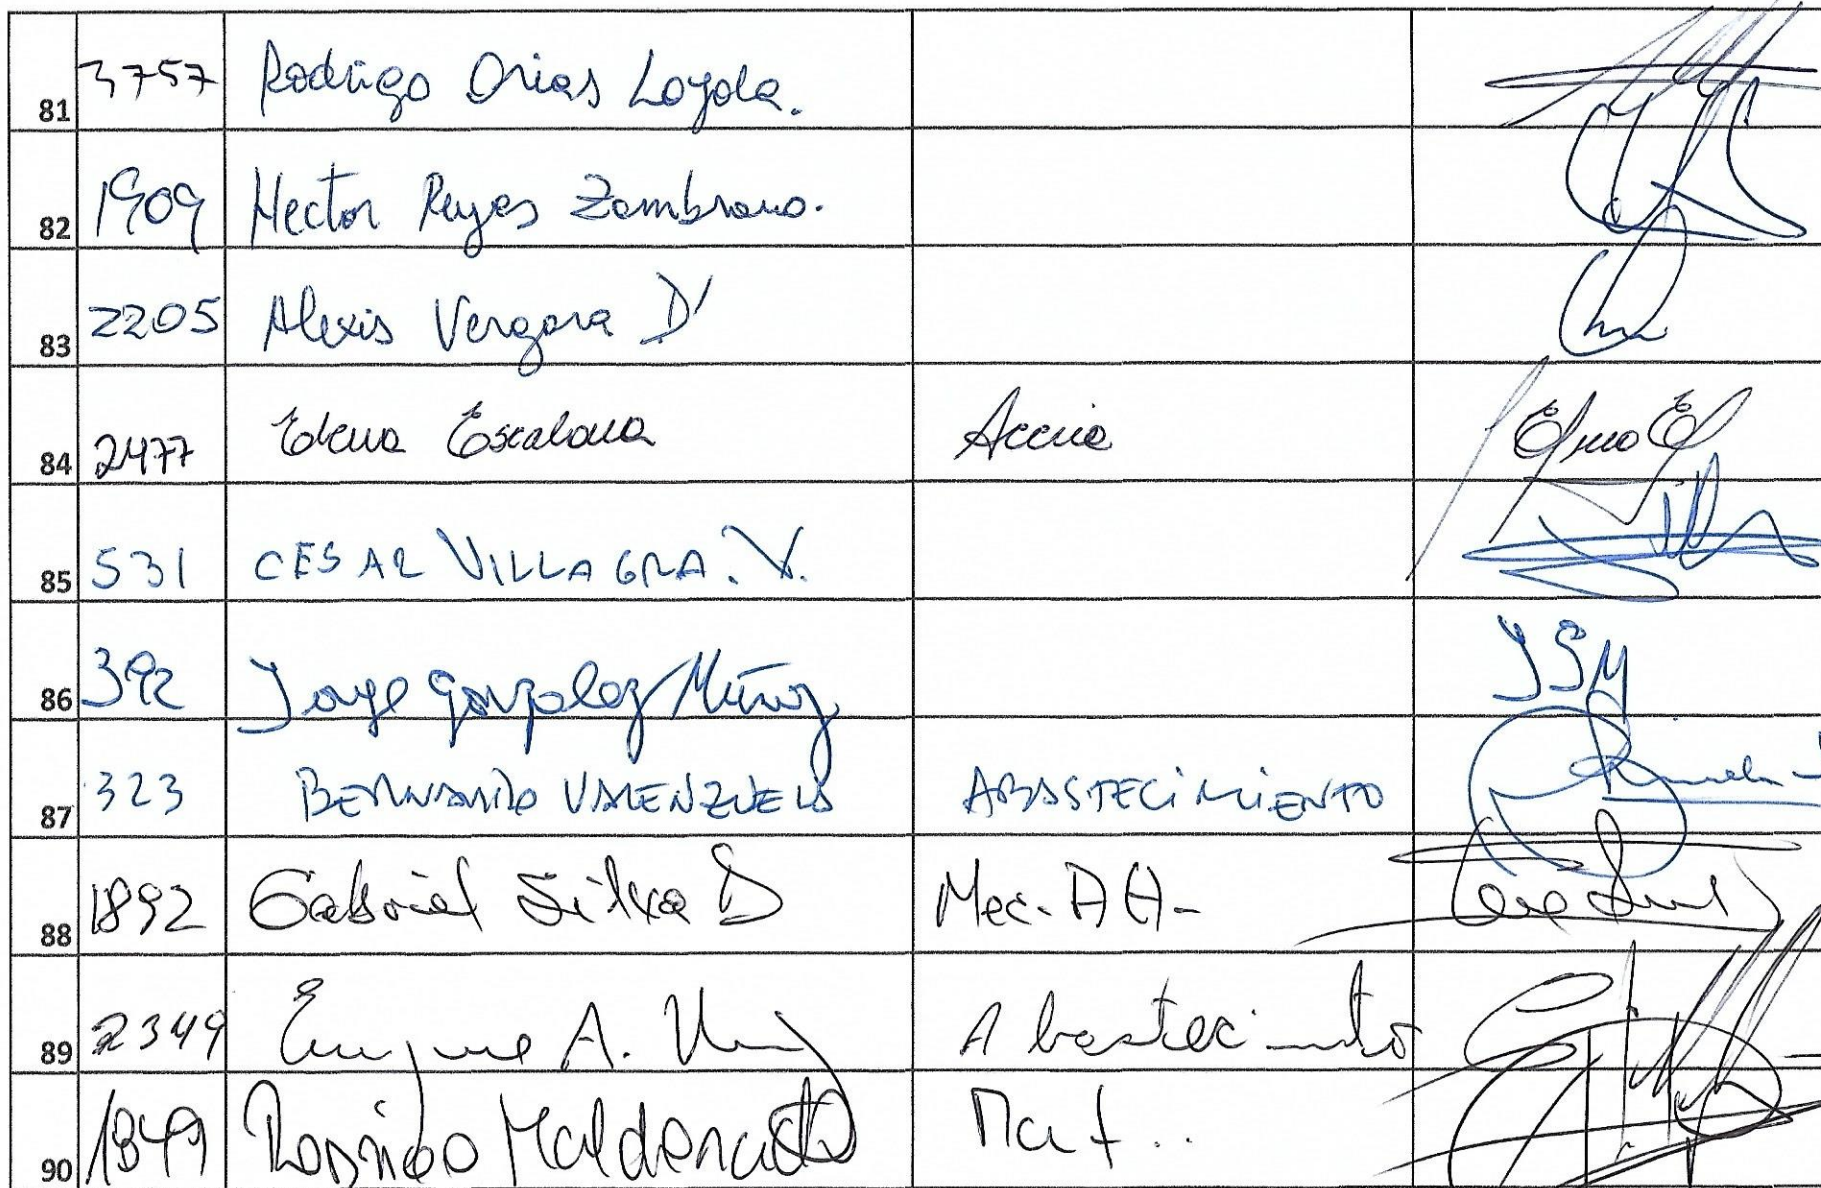 81 3757 Rodrigo Orias Loyola.
82 1909 Hector Reyes Zambrano.
83 2205 Alexis Vergara D'
84 2477 Elena Escalona
85 531 CESAR VILLAGRA. V.
86 392 Jorge Gonzalez Muñoz JGM
87 323 BERNARDO VALENZUELA ABASTECIMIENTO
88 1892 Gabriel Silva D Mec. A A-
89 2349 A. Abastecimiento
90 1849 Rodrigo Maldonado